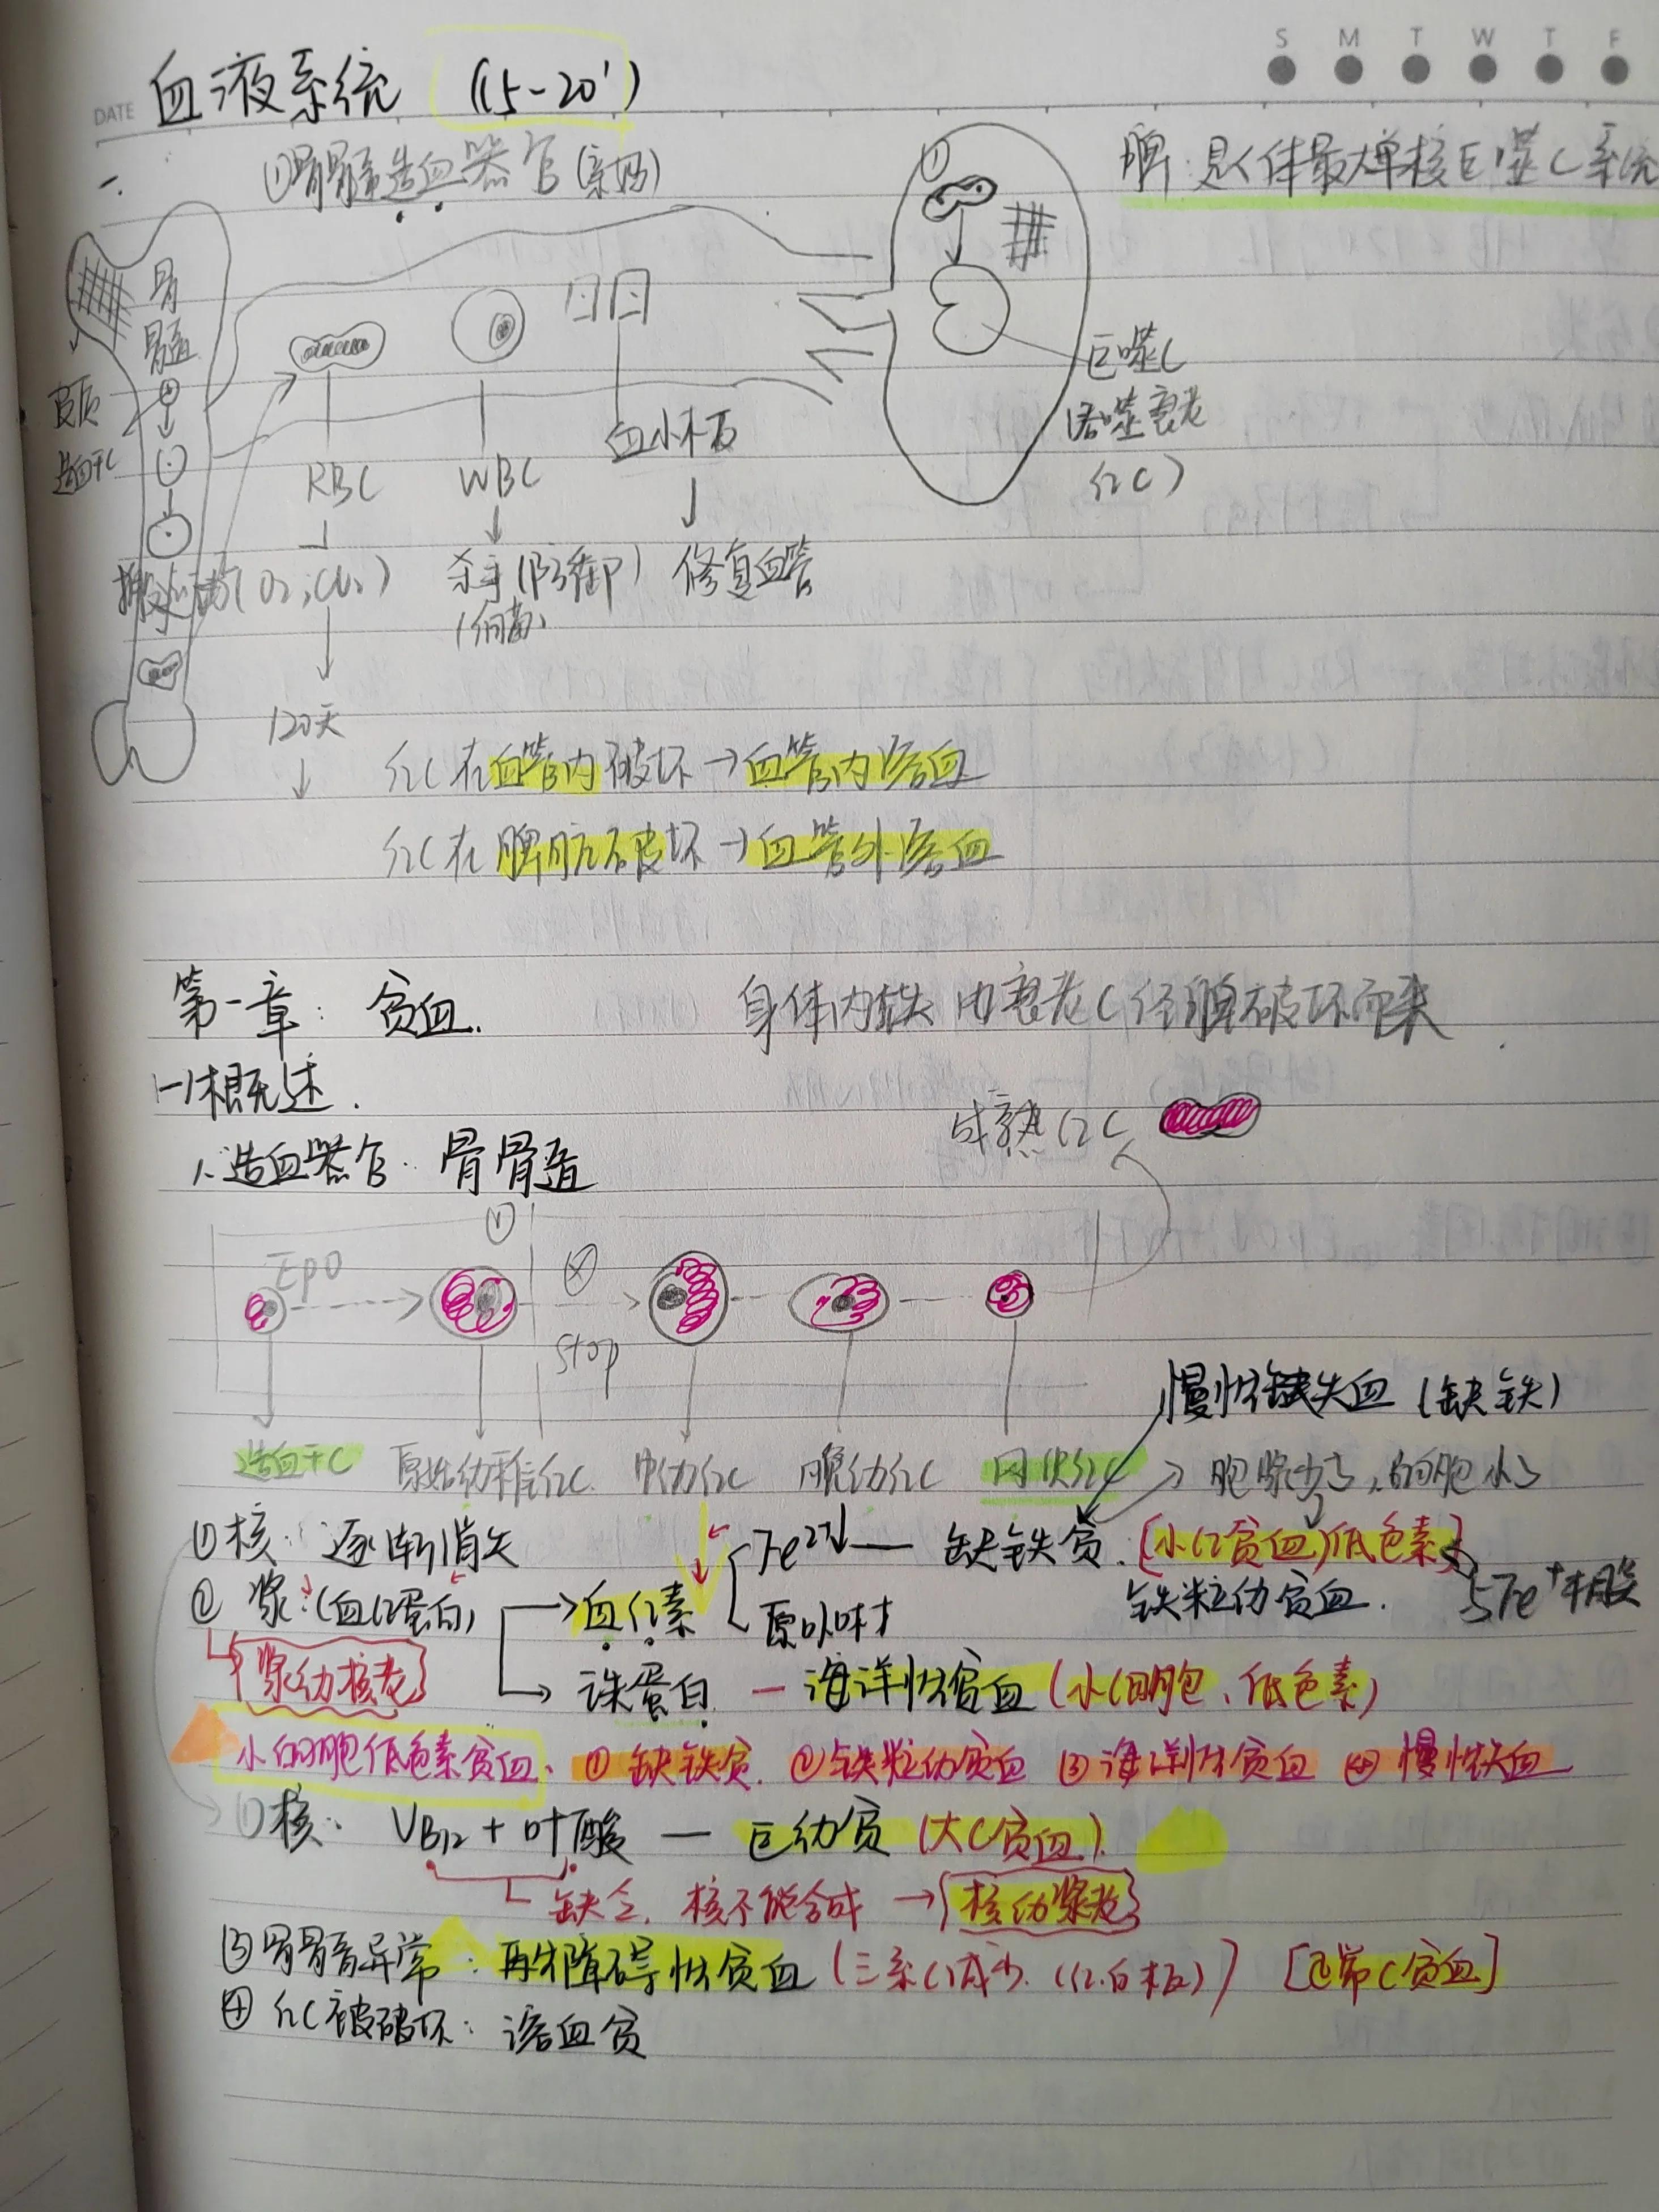 S M T W T F
DATE 血液系统 (15-20')
一. ①骨髓造血器官(亲妈) 脾:是人体最大单核巨噬C系统
①
骨髓
皮质
造血干C
巨噬C
(吞噬衰老
红C)
RBC WBC 血小板
搬运工(O2;CO2) 杀手(防御) 修复血管
(细菌)
120天
红C在血管内破坏→血管内溶血
红C在脾脏破坏→血管外溶血
第一章: 贫血. 身体内铁由衰老C经脾破坏而来.
(一)概述.
成熟红C
1.造血器官: 骨髓
①
EPO ⊗
stop
慢性失血(缺铁)
造血干C 原始幼稚红C 中幼红C 晚幼红C 网织红C → 胞浆少,细胞小
①核: 逐渐消失 Fe2+↓— 缺铁贫.[小红贫血)低色素]
②浆:(血红蛋白) →血红素 原卟啉 铁粒幼贫血. 与Fe+相关
浆幼核老 →珠蛋白 — 海洋性贫血(小细胞、低色素)
小细胞低色素贫血. ①缺铁贫. ②铁粒幼贫血 ③海洋性贫血 ④慢性失血
①核: VB12+叶酸 — 巨幼贫(大C贫血).
缺乏, 核不能合成 → 核幼浆老
③骨髓异常: 再生障碍性贫血(三系C减少.(红.白.板)) [正常C贫血]
④红C被破坏: 溶血贫